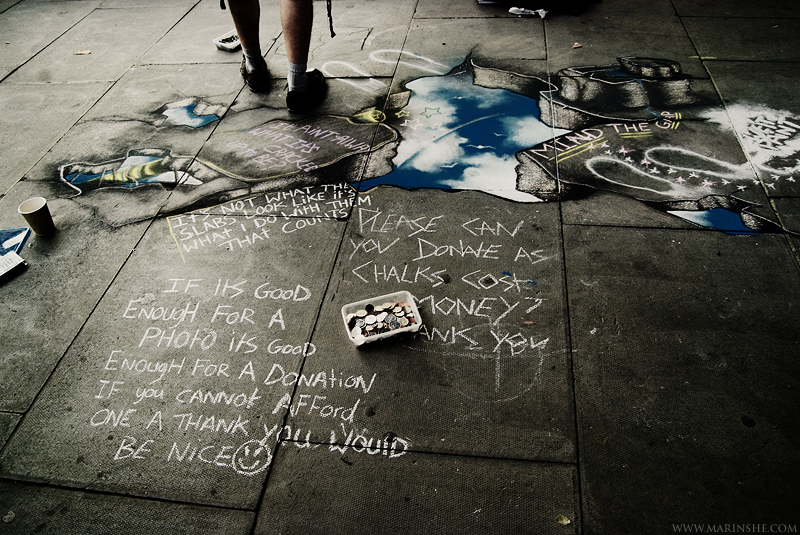 MIND THE GAP
WET
PAINT
IT'S NOT WHAT THE
SLABS LOOK LIKE IT'S
WHAT I DO WITH THEM
THAT COUNTS
PLEASE CAN
YOU DONATE AS
CHALKS COST
MONEY?
ANK YOU
IF ITS GOOD
ENOUGH FOR A
PHOTO ITS GOOD
ENOUGH FOR A DONATION
IF you CANNOT AFFORD
ONE A THANK YOU WOULD
BE NICE
WWW.MARINSHE.COM